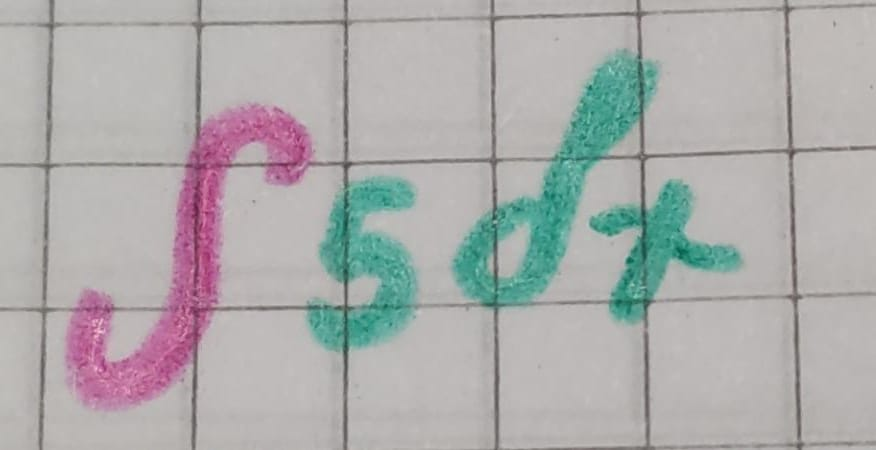 ∫ 5 dx